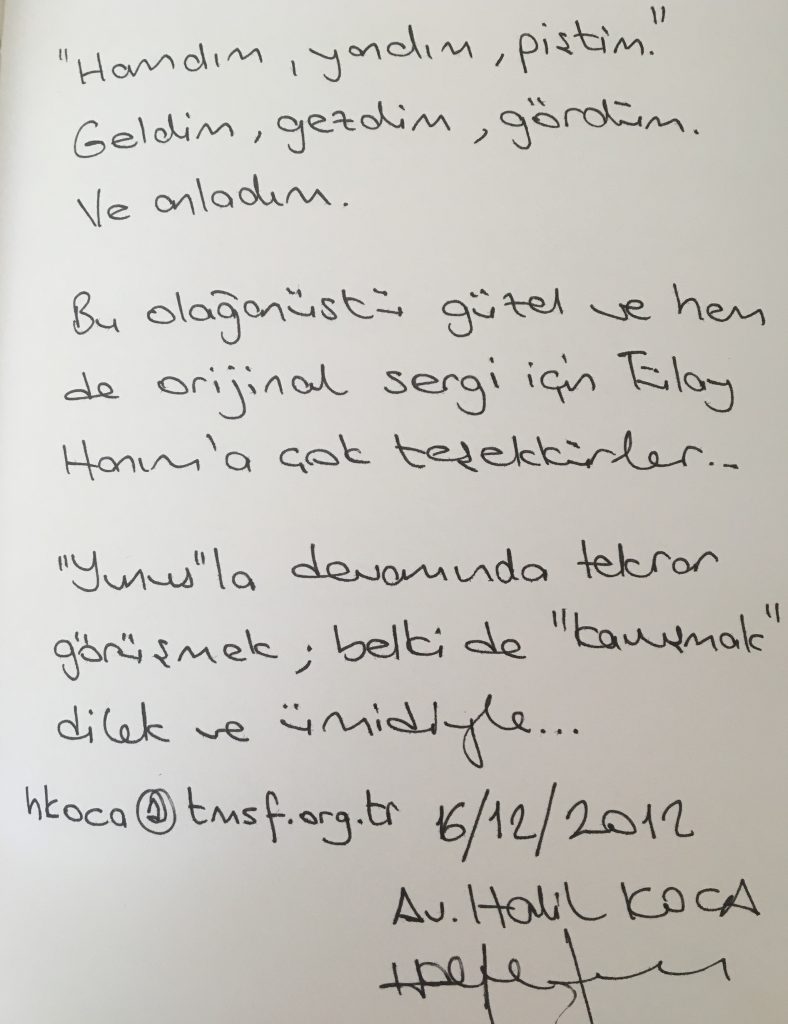 "Hamdım, yandım, piştim."
Geldim, gezdim, gördüm.
Ve anladım.
Bu olağanüstü güzel ve hem
de orijinal sergi için Tülay
Hanım'a çok teşekkürler...
"Yunus"la devamında tekrar
görüşmek; belki de "kavuşmak"
dilek ve ümidiyle...
hkoca@tmsf.org.tr 16/12/2012
Av. Halil KOCA